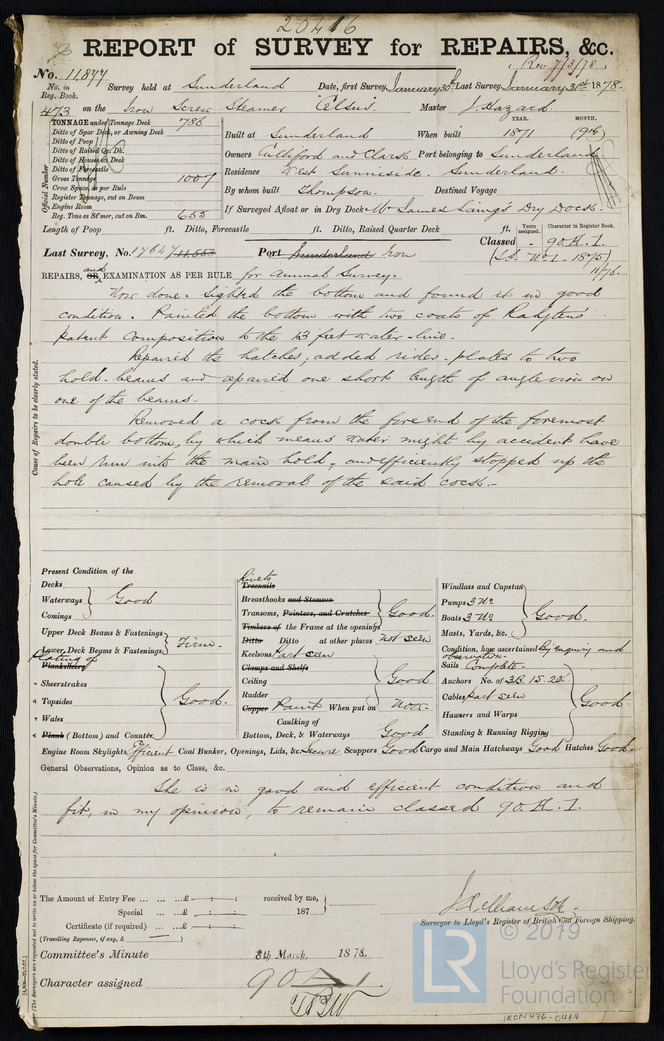 20416
REPORT of SURVEY for REPAIRS, &c.
(Rec 7/3/78)
No. 11877
No. in Reg. Book.
Survey held at Sunderland Date, first Survey January 30th Last Survey January 31st 1878.
473 on the Iron Screw Steamer Celsus. Master J. Hazard
TONNAGE under Tonnage Deck 786
Ditto of Spar Deck, or Awning Deck
Ditto of Poop
Ditto of Raised Qr. Dk.
Ditto of House on Deck
Ditto of Forecastle
Gross Tonnage 1007
Crew Space, as per Rule
Register Tonnage, cut on Beam
Engine Room
Reg. Tons as St'mer, cut on Bm. 655
Official Number
YEAR. MONTH.
Built at Sunderland When built 1871 (9th)
Owners Culliford and Clark Port belonging to Sunderland
Residence West Sunniside. Sunderland.
By whom built Thompson. Destined Voyage
If Surveyed Afloat or in Dry Dock Mr James Laing's Dry Dock.
Length of Poop ft. Ditto, Forecastle ft. Ditto, Raised Quarter Deck ft.
Years assigned. Character in Register Book.
Last Survey, No. 17647 11,553 Port Sunderland Iron
Classed - 90.A.1.
(S.S. No 1 - 1875)
11/76.
REPAIRS, OR and EXAMINATION AS PER RULE for Annual Survey.
Now done. Sighted the bottom and found it in good
condition. Painted the bottom with two coats of Rahtjen's
patent composition to the 13 feet water-line.
Repaired the hatches, added sides-plates to two
hold-beams and repaired one short length of angle iron on
one of the beams.
Removed a cock from the fore end of the foremost
double bottom, by which means water might by accident have
been run into the main hold, and efficiently stopped up the
hole caused by the removal of the said cock.
Cause of Repairs to be clearly stated.
Present Condition of the
Decks
Waterways Good
Comings
Upper Deck Beams & Fastenings
Lower Deck Beams & Fastenings Firm.
Plating of
Planksheers
" Sheerstrakes
" Topsides Good.
" Wales
" Plank (Bottom) and Counter
Rivets
Treenails
Breasthooks and Stemson
Transoms, Pointers, and Crutches Good.
Timbers of the Frame at the openings
Ditto Ditto at other places Not seen
Keelsons Part seen
Clamps and Shelfs
Ceiling Good
Rudder
Copper Paint When put on Now.
Caulking of
Bottom, Deck, & Waterways Good
Windlass and Capstan
Pumps 3 No
Boats 3 No Good.
Masts, Yards, &c.
Condition, how ascertained By enquiry and
observation.
Sails Complete.
Anchors No. of 3B. 1S. 2K.
Cables Part seen Good.
Hawsers and Warps
Standing & Running Rigging
Engine Room Skylights Efficient Coal Bunker, Openings, Lids, &c. Secure Scuppers Good Cargo and Main Hatchways Good Hatches Good.
General Observations, Opinion as to Class, &c.
She is in good and efficient condition and
fit, in my opinion, to remain classed 90.A.1.
(The Surveyors are requested not to write on or below the space for Committee's Minute.)
The Amount of Entry Fee ... £ : : received by me,
Special ... £ : : 187
Certificate (if required) ... £ : :
(Travelling Expenses, if any, £ )
Surveyor to Lloyd's Register of British and Foreign Shipping.
Committee's Minute 8th March. 1878.
Character assigned 90 A 1.
© 2019
LR
Lloyd's Register
Foundation
IRON496-0464